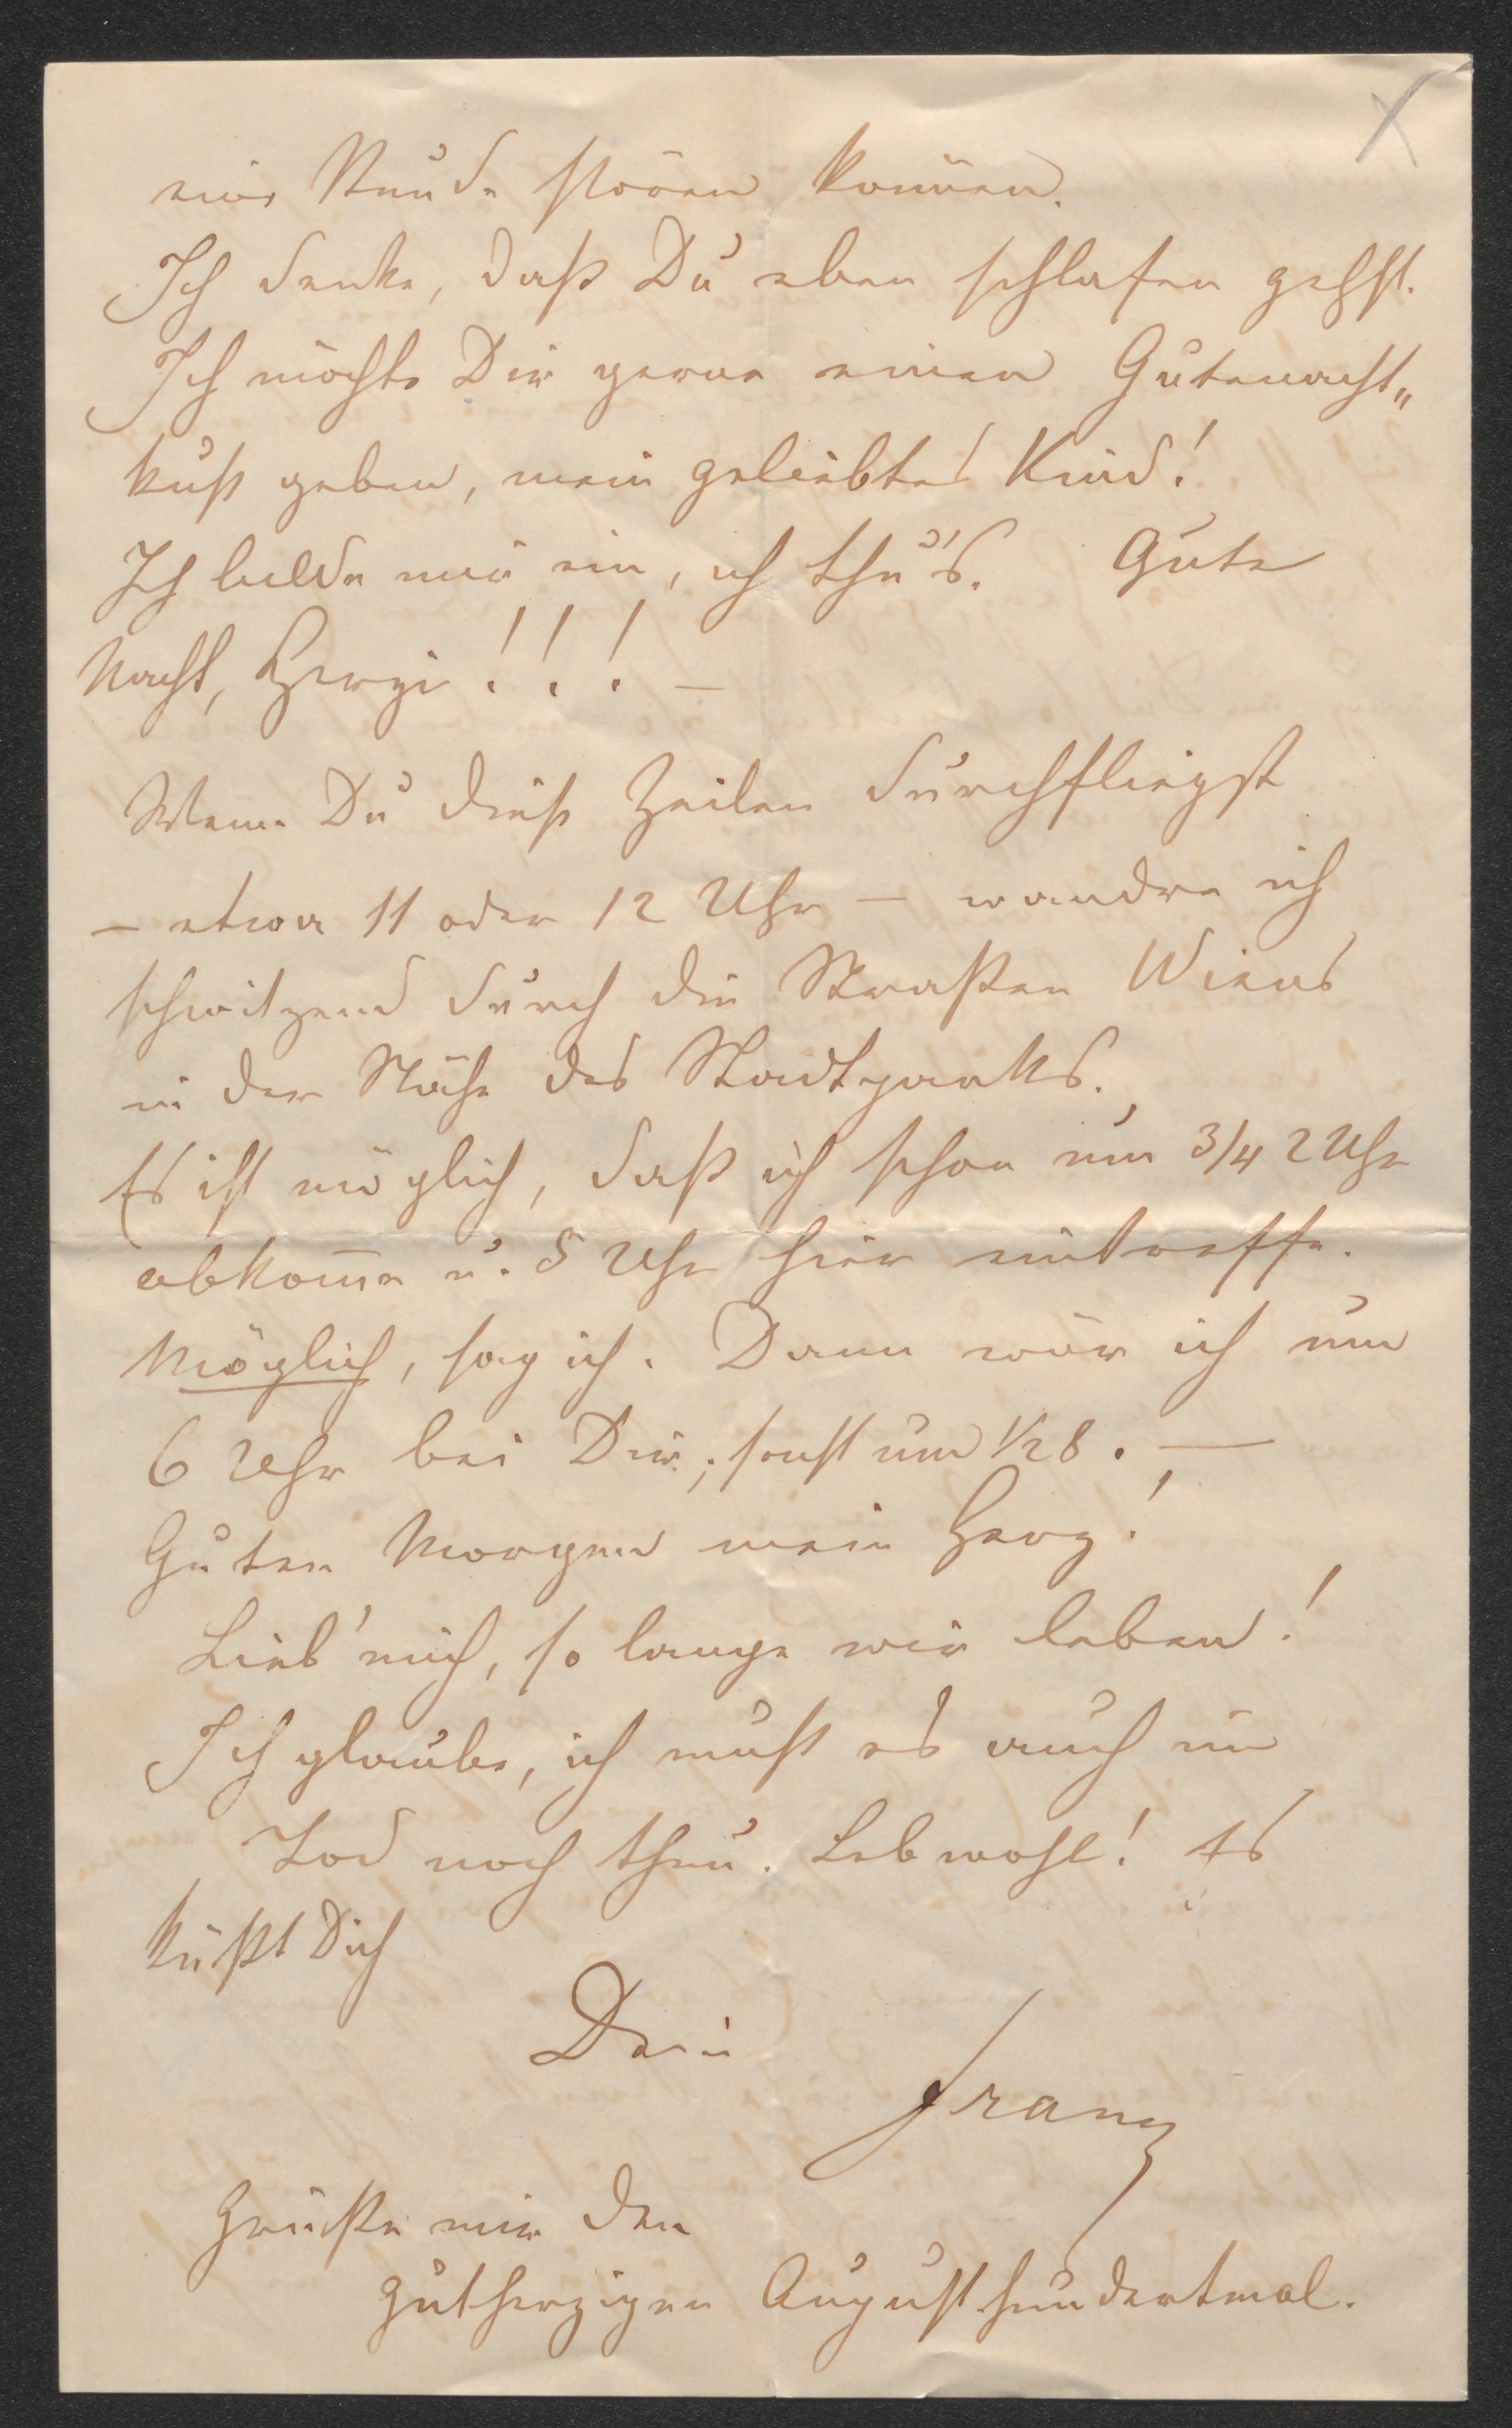 eine Stunde stören können.
Ich denke, daß Du eben schlafen gehst.
Ich möchte Dir gerne einen Gutenacht„
kuß geben, mein geliebtes Kind!
Ich bilde mir ein, ich thu's. Gute
Nacht, Herzi!!! –
Wenn Du diese Zeilen durchfliegst
– etwa 11 oder 12 Uhr – wandre ich
schwitzend durch die Straßen Wiens
in der Nähe des Stadtparks.
Es ist möglich, daß ich schon um 3/4 2 Uhr
abkom̄e u. 5 Uhr hier eintreffe.
Möglich, sag ich. Dann wär ich um
6 Uhr bei Dir; sonst um 1/2 8. —
Guten Morgen mein Herz!
Lieb' mich, so lange wir leben!
Ich glaube, ich muß es auch im
Tod noch thun. Lebwohl! Es
küßt Dich
Dein
Franz
Grüße mir den
gutherzigen August hundertmal.